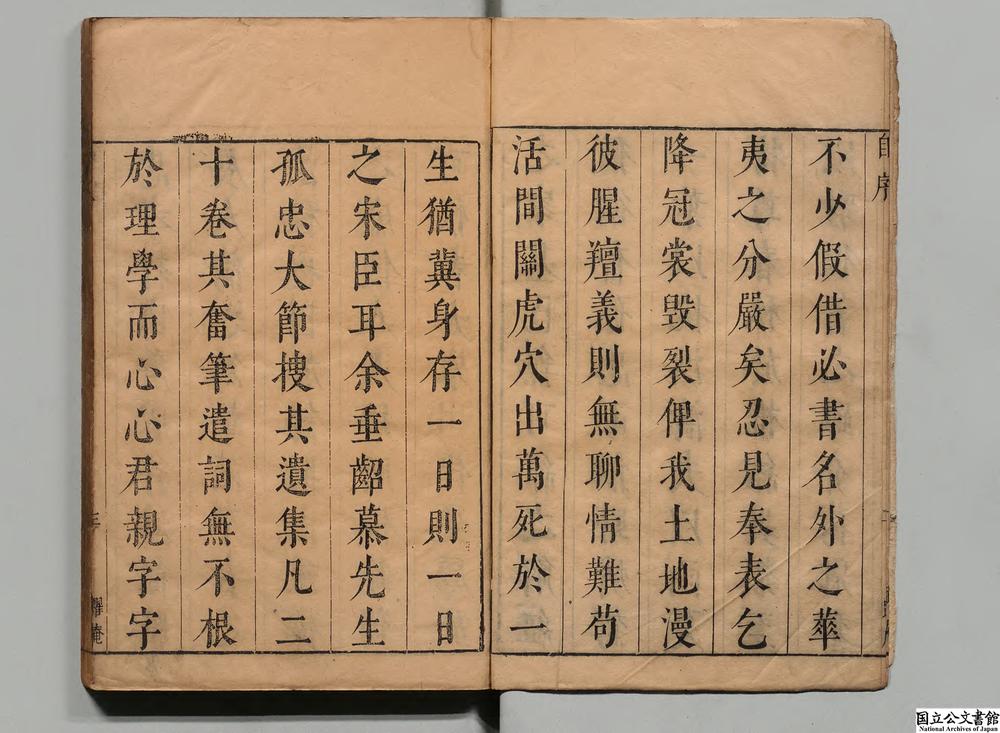 自序
不少假借必書名外之華
夷之分嚴矣忍見奉表乞
降冠裳毀裂俾我土地漫
彼腥羶義則無聊情難苟
活間關虎穴出萬死於一
生猶冀身存一日則一日
之宋臣耳余垂齠慕先生
孤忠大節搜其遺集凡二
十卷其奮筆遣詞無不根
於理學而心心君親字字
國立公文書館
National Archives of Japan